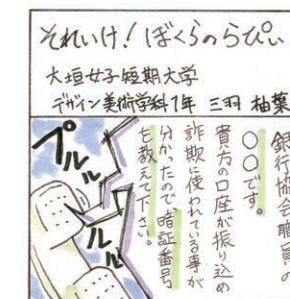 それいけ!ぼくらのらぴぃ
大垣女子短期大学
デザイン美術学科1年 三羽 柚葉
銀行協会職員の
○○です。
貴方の口座が振り込め
詐欺に使われている事が
分かったので、暗証番号
を教えて下さい。
プルルル
ルル